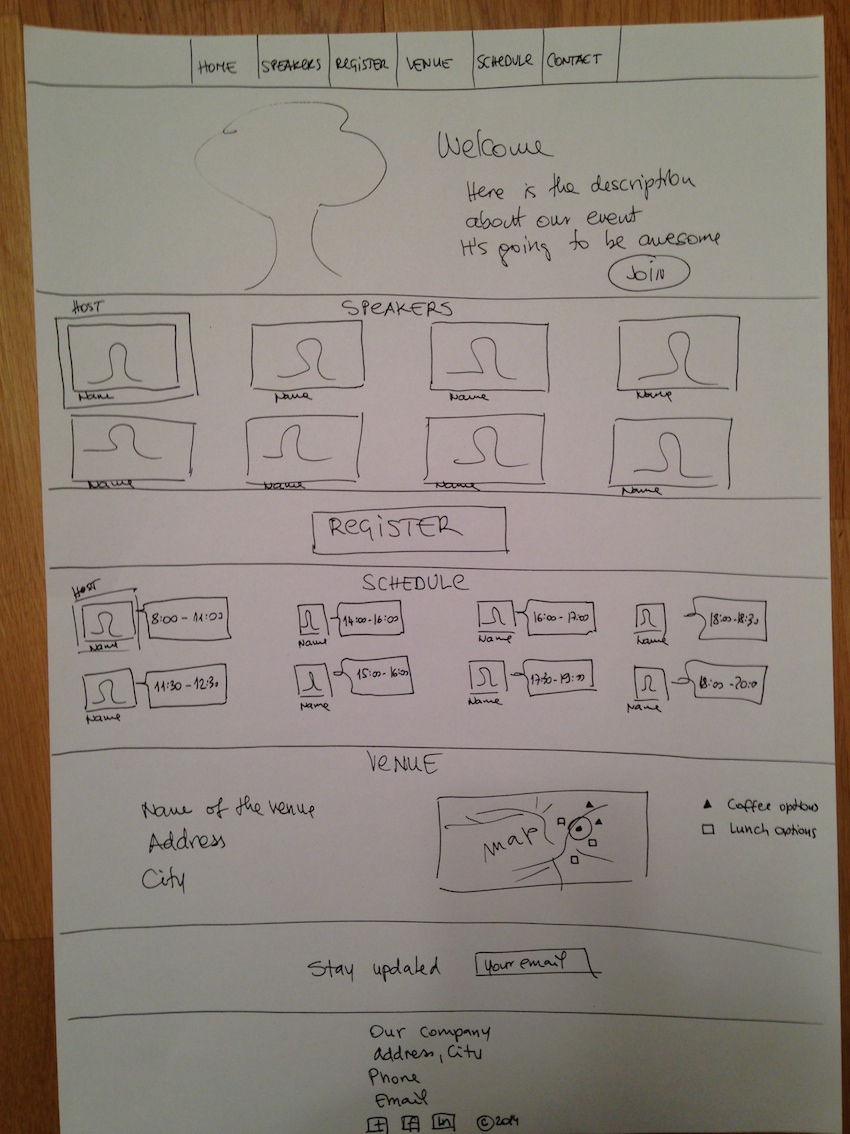 HOME SPEAKERS REGISTER VENUE SCHEDULE CONTACT
Welcome
Here is the description
about our event
It's going to be awesome
JOIN
SPEAKERS
HOST
Name Name Name Name
Name Name Name Name
REGISTER
SCHEDULE
HOST
8:00 - 11:00 14:00-16:00 16:00 - 17:00 18:00-18:30
Name Name Name Name
11:30 - 12:30 15:00 - 16:00 17:30 - 19:00 18:00 - 20:00
Name Name Name Name
VENUE
Name of the venue
Address
City
map
Coffee options
Lunch options
Stay updated your email
Our Company
address, City
Phone
Email
f in ©2014